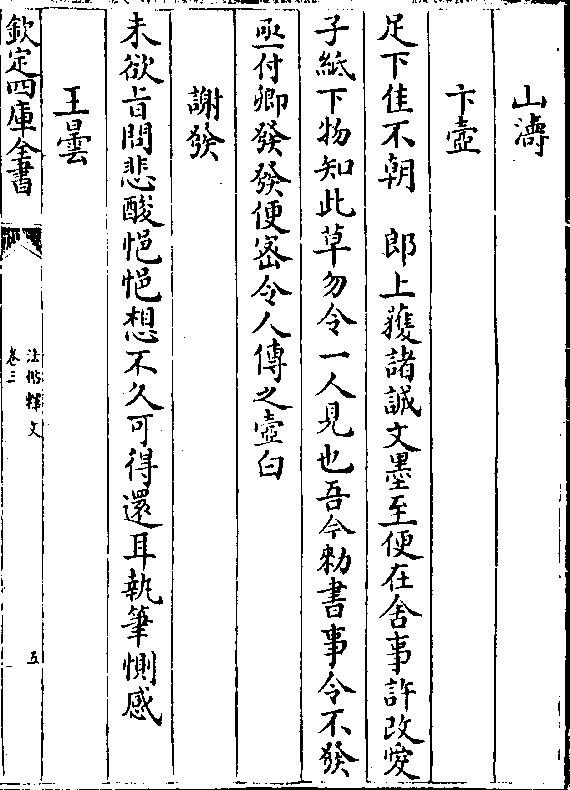 山濤
卞壺
足下佳不朝　郎上獲諸誠文墨至便在舍事許改愛
子紙下物知此草勿令一人見也吾今勑書事令不發
亟付卿發發便宻令人傳之壺白
謝發
未欲㫖問悲酸悒悒想不久可得還耳執筆惻感
王曇
欽定四庫全書
法帖釋文
卷三
五